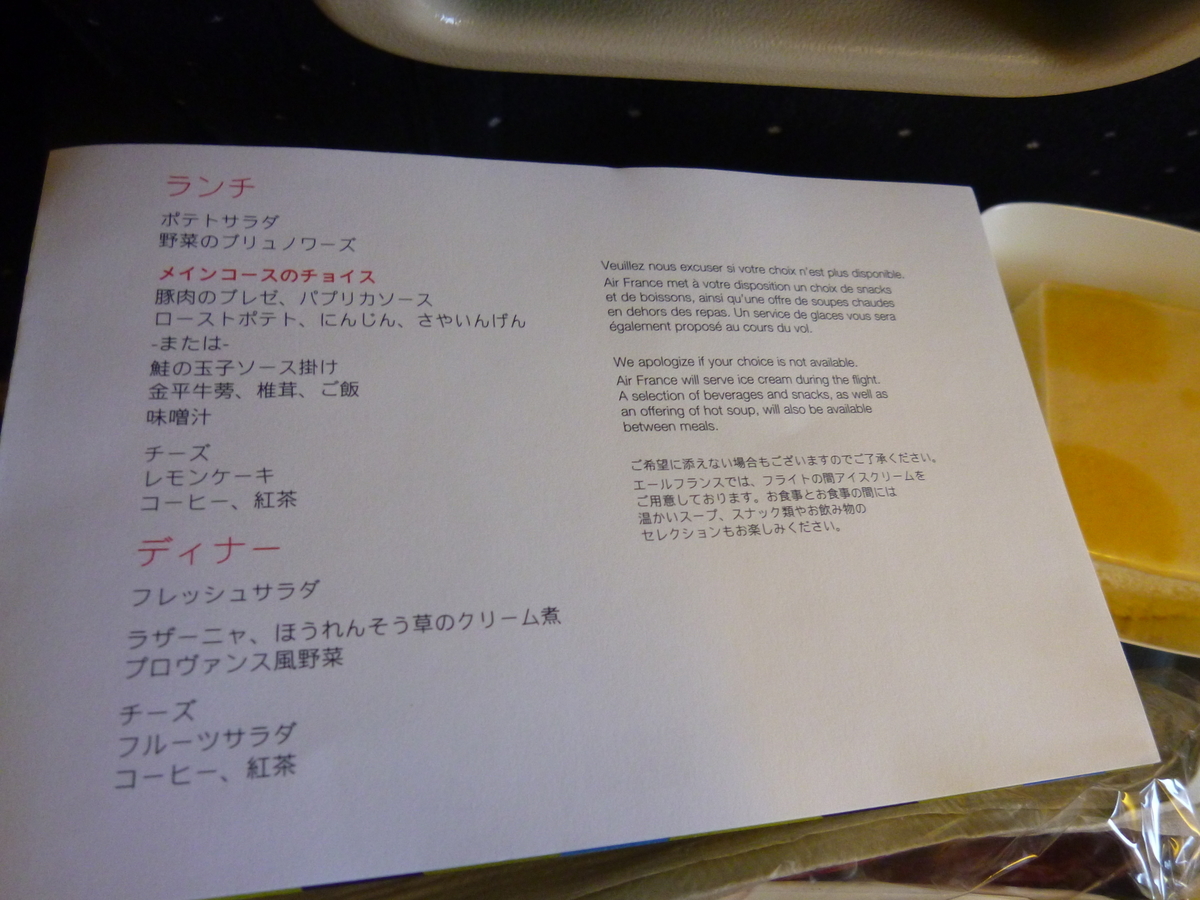 ランチ
ポテトサラダ
野菜のブリュノワーズ
メインコースのチョイス
豚肉のブレゼ、パプリカソース
ローストポテト、にんじん、さやいんげん
-または-
鮭の玉子ソース掛け
金平牛蒡、椎茸、ご飯
味噌汁
チーズ
レモンケーキ
コーヒー、紅茶
ディナー
フレッシュサラダ
ラザーニャ、ほうれんそう草のクリーム煮
プロヴァンス風野菜
チーズ
フルーツサラダ
コーヒー、紅茶
Veuillez nous excuser si votre choix n'est plus disponible.
Air France met à votre disposition un choix de snacks
et de boissons, ainsi qu'une offre de soupes chaudes
en dehors des repas. Un service de glaces vous sera
également proposé au cours du vol.
We apologize if your choice is not available.
Air France will serve ice cream during the flight.
A selection of beverages and snacks, as well as
an offering of hot soup, will also be available
between meals.
ご希望に添えない場合もございますのでご了承ください。
エールフランスでは、フライトの間アイスクリームを
ご用意しております。お食事とお食事の間には
温かいスープ、スナック類やお飲み物の
セレクションもお楽しみください。